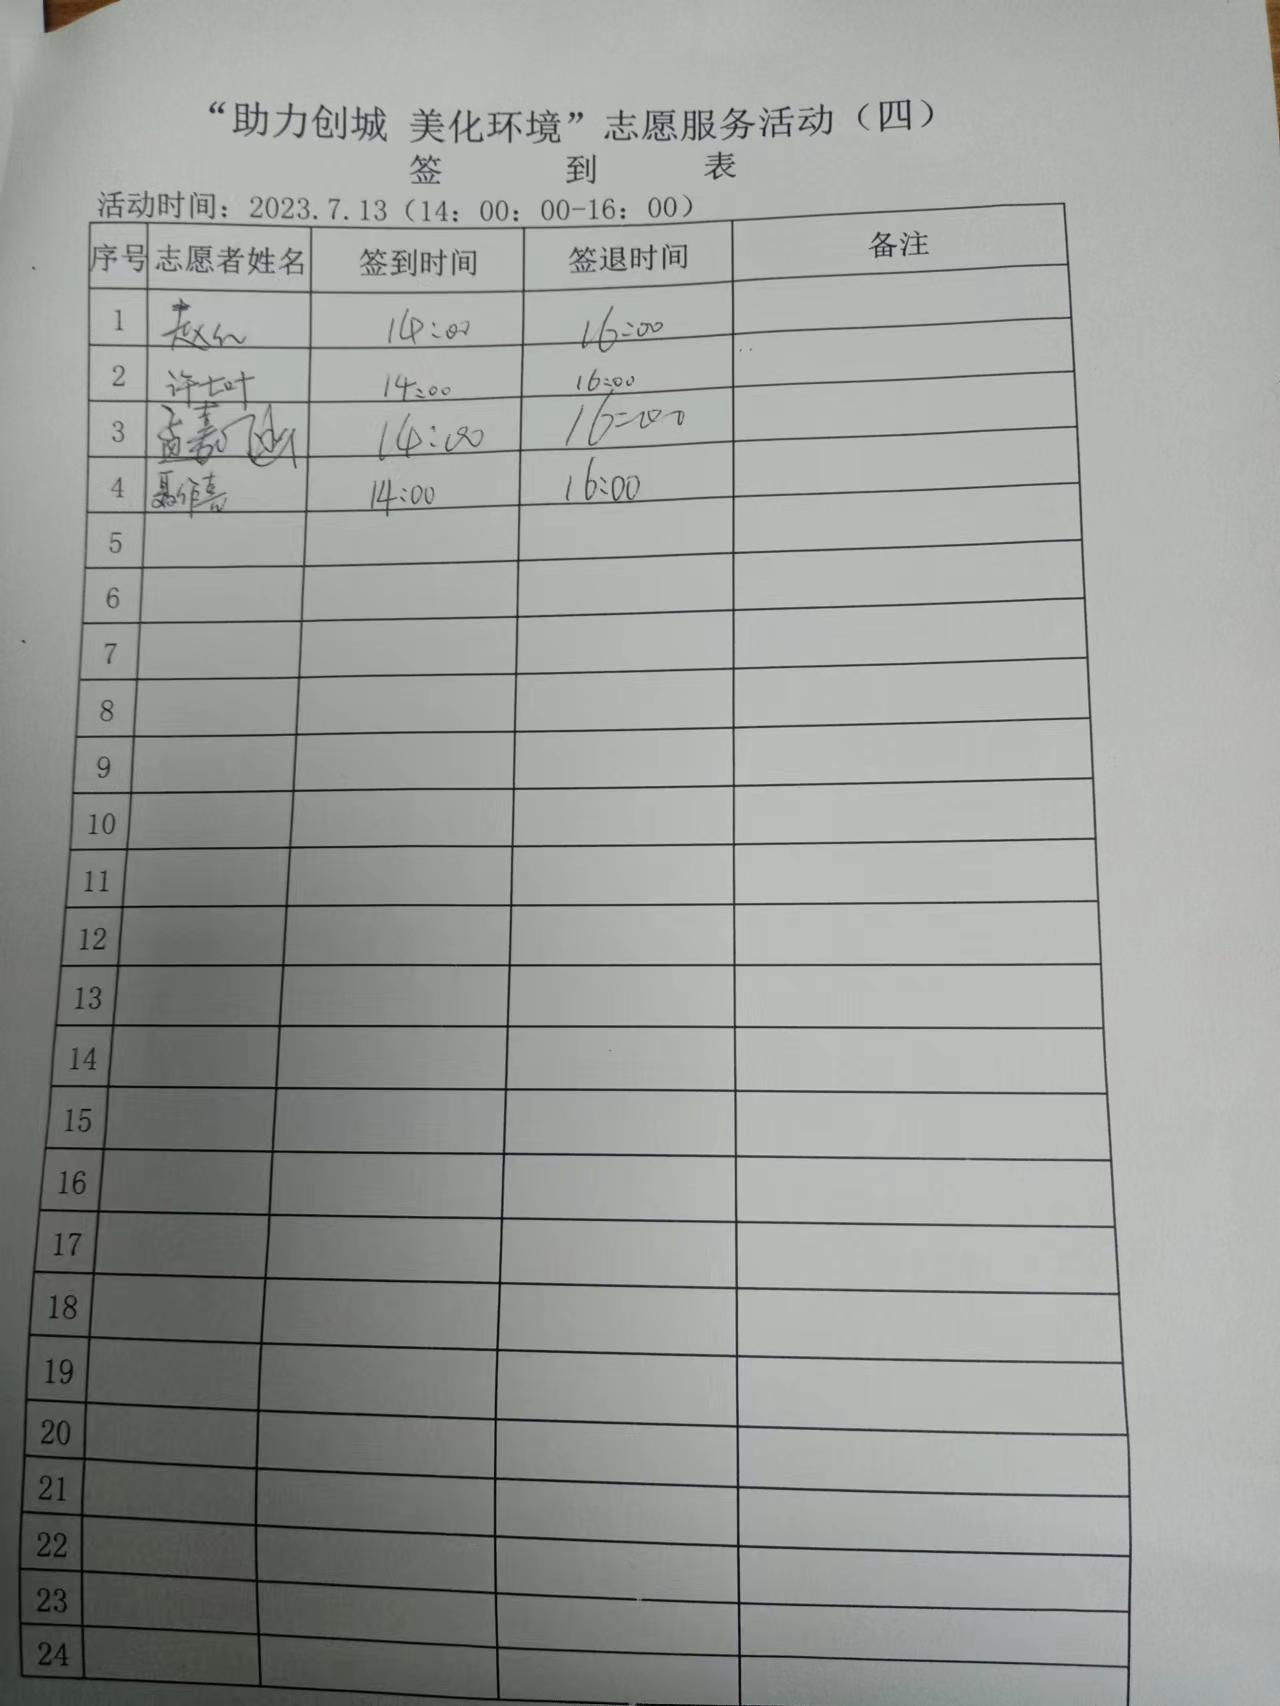 “助力创城 美化环境”志愿服务活动（四）
签 到 表
活动时间：2023.7.13（14：00：00-16：00）
序号 志愿者姓名 签到时间 签退时间 备注
1 赵 14:00 16:00
2 许七叶 14:00 16:00
3 孟嘉 14:00 16:00
4 聂作喜 14:00 16:00
5
6
7
8
9
10
11
12
13
14
15
16
17
18
19
20
21
22
23
24